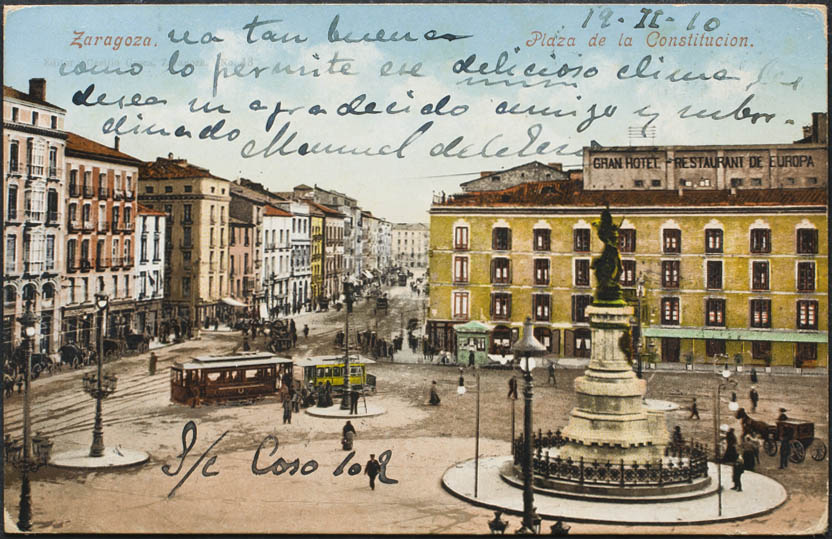 19-II-10
Zaragoza.
Plaza de la Constitucion.
sea tan buena
como lo permite ese delicioso clima les
desea su agradecido amigo y subor-
dinado
Manuel de
GRAN HOTEL - RESTAURANT DE EUROPA
S/c Coso 102